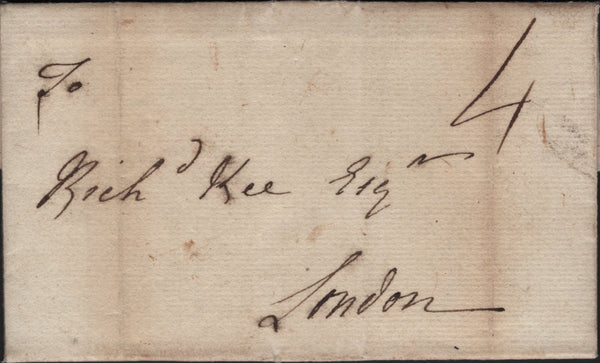 To
4
Richd Kee Esqr
London